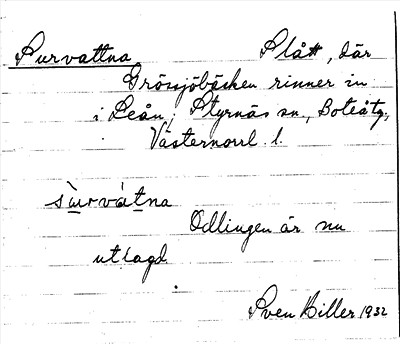 Survattna Slått, där
Grössjöbäcken rinner in
i Leån, Styrnäs sn., Boteåtg.,
Västernorrl. l.
sùrvátna
Odlingen är nu
utlagd.
Sven Biller 1932